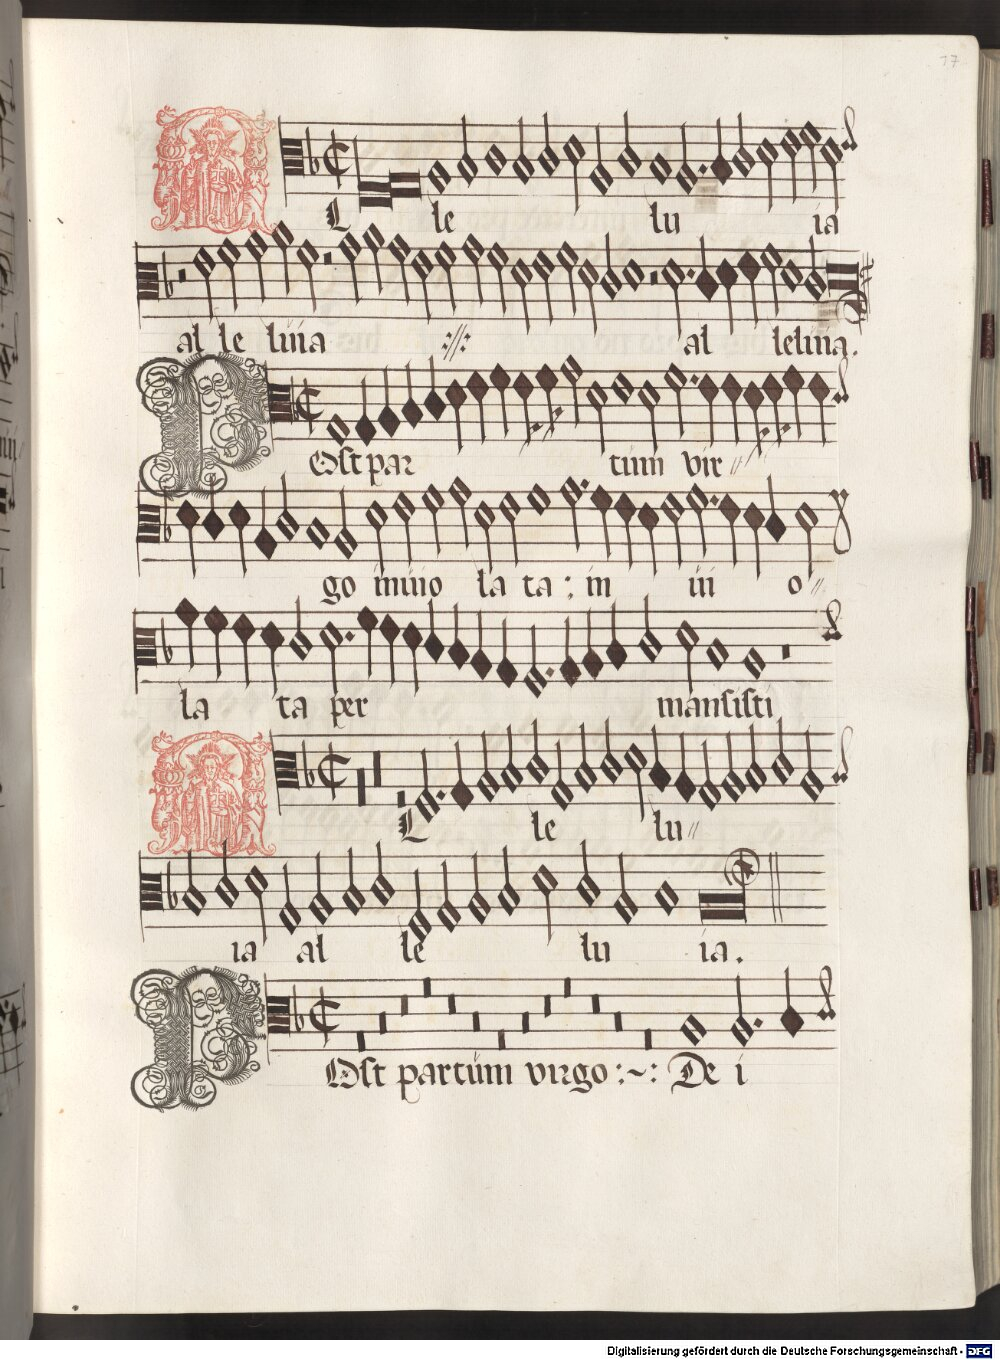 17
ALle lu ia
al le luia :||: al leluia.
POst par tum vir
go invio la ta : in vi o
la ta per mansisti
ALle lu
ia al le lu ia.
POst partum virgo :~: De i
Digitalisierung gefördert durch die Deutsche Forschungsgemeinschaft - DFG